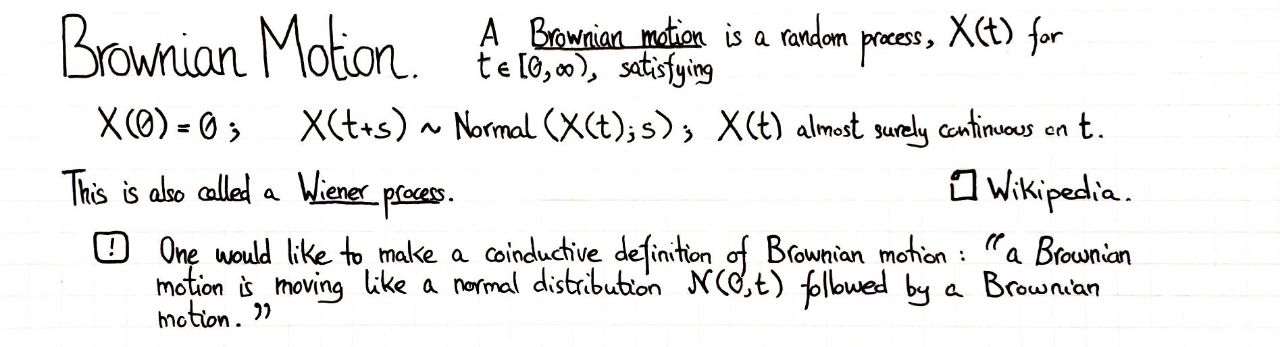 Brownian Motion. A Brownian motion is a random process, X(t) for
t ∈ [0,∞), satisfying
X(0) = 0 ; X(t+s) ~ Normal (X(t);s) ; X(t) almost surely continuous on t.
This is also called a Wiener process. Wikipedia.
! One would like to make a coinductive definition of Brownian motion : “a Brownian
motion is moving like a normal distribution N(0,t) followed by a Brownian
motion.”